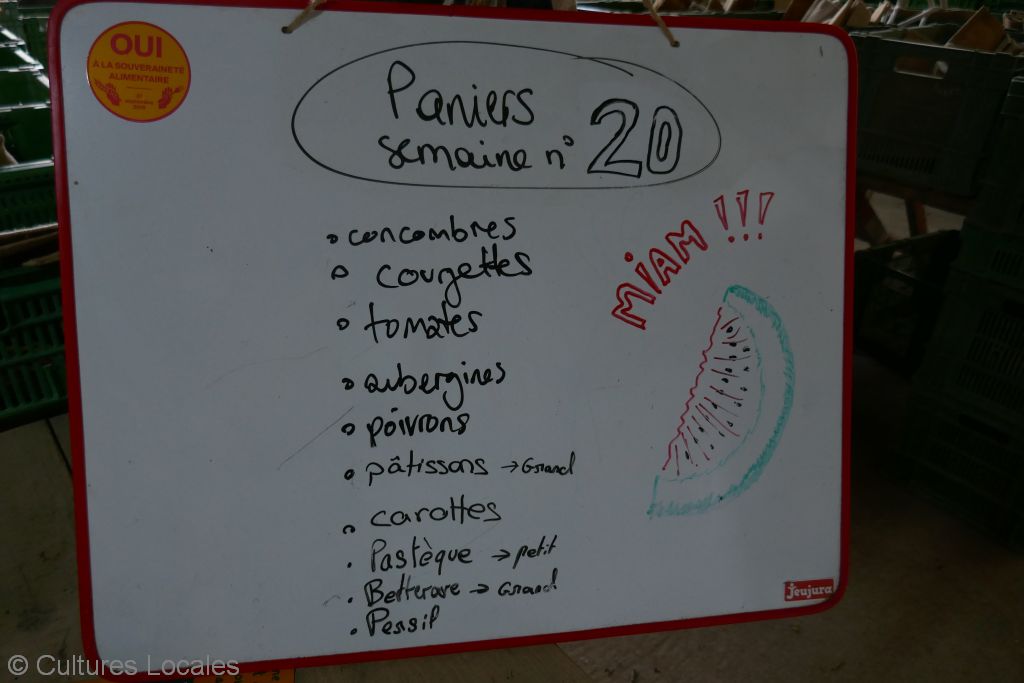 OUI
À LA SOUVERAINETÉ
ALIMENTAIRE
septembre
Paniers
semaine n° 20
MIAM !!!
• concombres
• courgettes
• tomates
• aubergines
• poivrons
• pâtissons → Grand
• carottes
• Pastèque → petit
• Betterave → Grand
• Persil
jeujura
© Cultures Locales